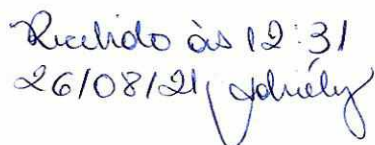 Recebido às 12:31
26/08/21, Adriély